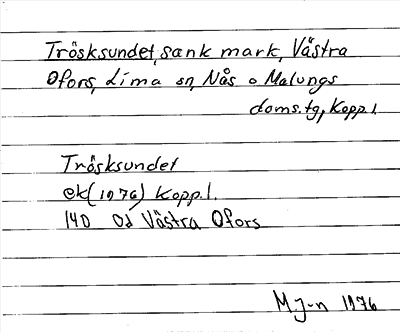 Trösksundet, sank mark, Västra
Ofors, Lima sn, Nås o Malungs
doms.tg, Kopp.l.
Trösksundet
ek(1976) Kopp.l.
14D 0d Västra Ofors
M.J-n 1976